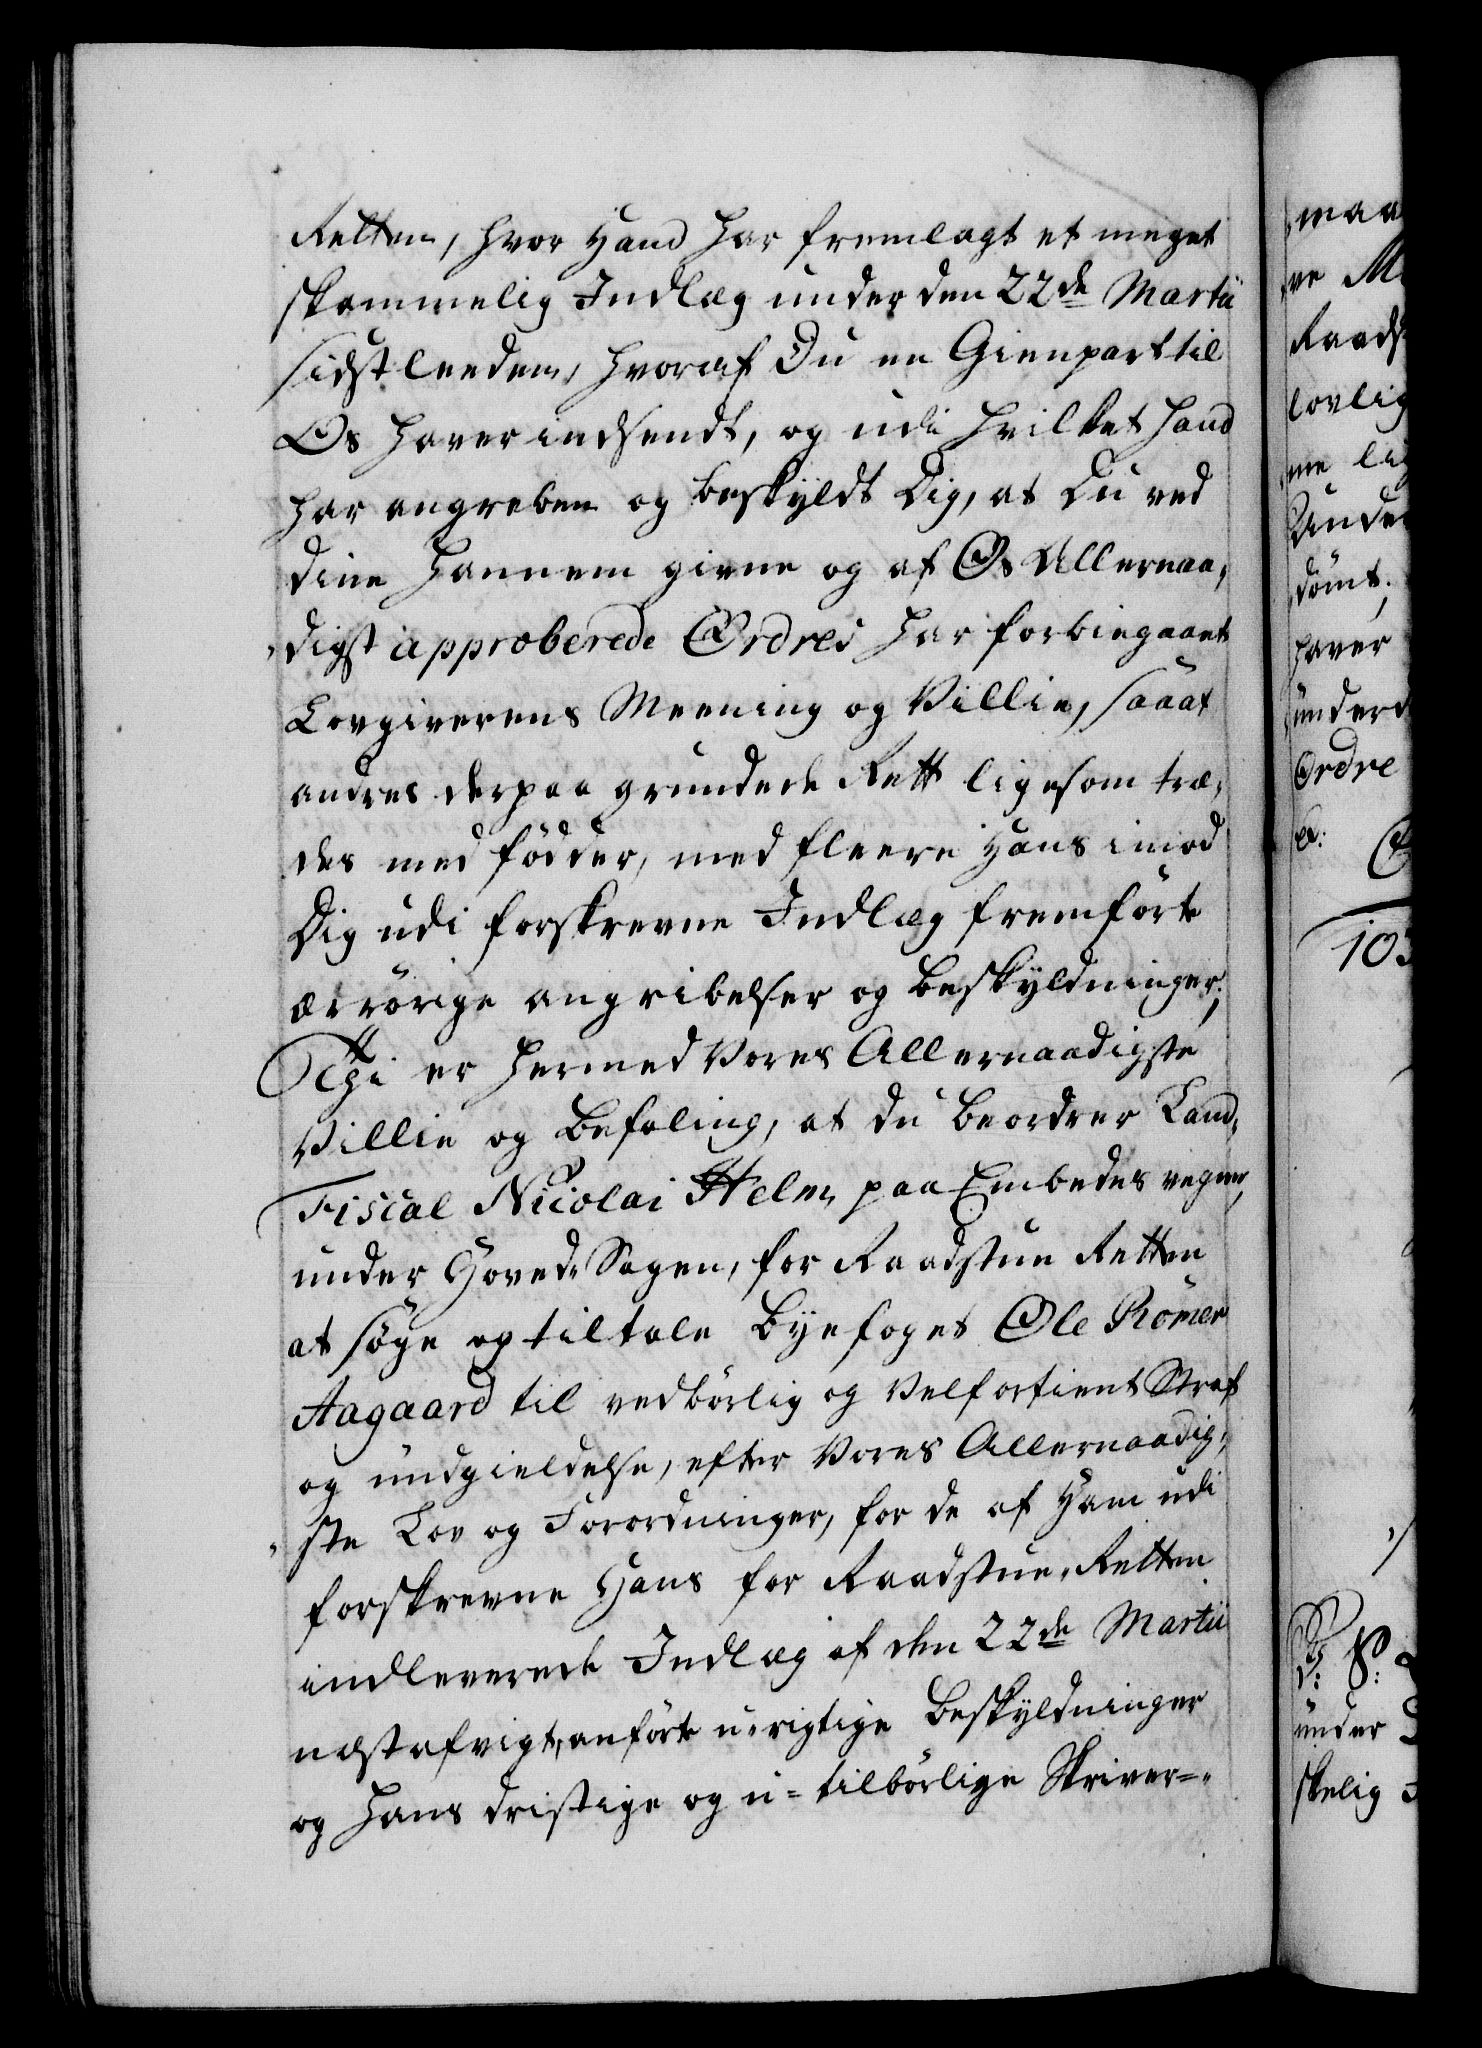 Retten, hvor Hand har fremlagt et meget
skammelig Indlæg under den 22de Martii
sidstleeden, hvoraf Du en Gienpart til
Os haver indsendt, og udi hvilket Hand
har angreben og beskyldt Dig, at Du ved
dine Hannem givne og af Os Allernaa-
digst approberede Ordres har forbiegaaet
Lovgiverens Meening og Villie, saaat
andres derpaa grundede Rett ligesom træ-
des med födder, med fleere Hans imod
Dig udi forskrevne Indlæg fremförte
ærrörige angribelser og beskyldninger;
Thi er hermed Vores Allernaadigste
Villie og Befaling, at du beordrer Land-
Fiscal Nicolai Helm, paa Embedes vegne,
under Hoved-Sagen, for Raadstue Retten
at söge og tiltale Byefoget Ole Römer
Aagaard til vedbörlig og velfortient Straf
og undgieldelse, efter Vores Allernaadig-
ste Lov og Forordninger, for de af Ham udi
forskrevne Hans for Raadstue-Retten
indleverede Indlæg af den 22de Martii
næstafvigt, anförte u-rigtige Beskyldninger
og Hans dristige og u-tilbörlige Skriver-
maa
ve
Raads
lovlig
me
Unde
dömt;
haver
underd
Ordre
103
under
skelig